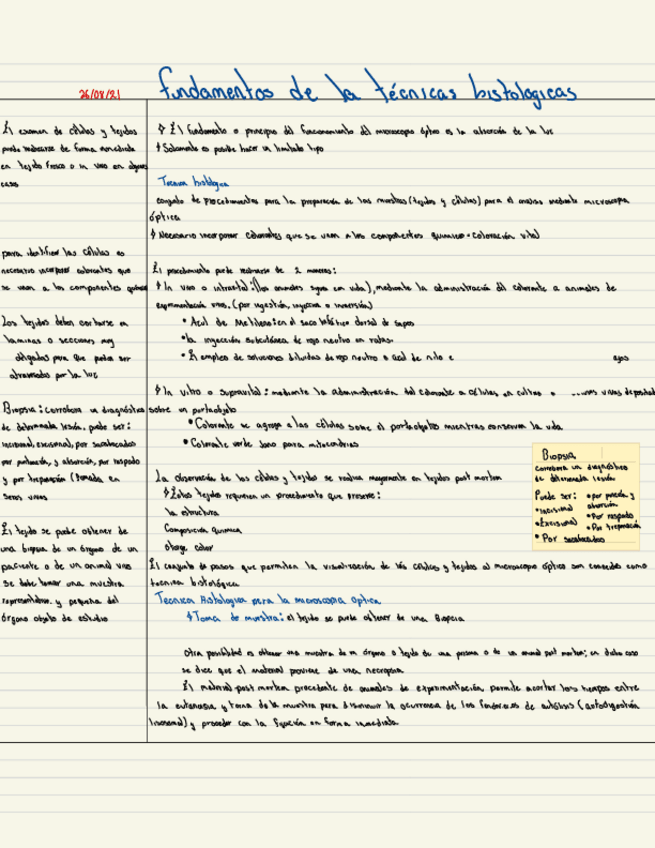 26/08/21
fundamentos de la técnicas histologicas
El examen de células y tejidos
puede realizarse de forma inmediata
en tejido fresco o in vivo en algunos
casos
para identificar las células es
necesario incorporar colorantes que
se unan a los componentes químicos
Los tejidos deben cortarse en
laminas o secciones muy
delgadas para que pueda ser
atravesados por la luz
Biopsia: corrobora un diagnóstico
de determinada lesión, puede ser:
incisional, excisional, por sacabocados
por punción, y absorción, por raspado
y por trepanación (tomada en
seres vivos
El tejido se puede obtener de
una biopsia de un órgano de un
paciente o de un animal vivo
se debe tomar una muestra
representativa y pequeña del
órgano objeto de estudio
El fundamento o principio del funcionamiento del microscopio óptico es la absorción de la luz
Solamente es posible hacer un limitado tipo
Tecnica histológica
conjunto de procedimientos para la preparación de las muestras (tejidos y células) para el analisis mediante microscopia
óptica
Necesario incorporar colorantes que se unan a los componentes químicos = coloración vital
El procedimiento puede realizarse de 2 maneras:
In vivo o intravital: (los animales siguen en vida), mediante la administración del colorante a animales de
experimentación vivos, (por ingestión, inyección o inmersión)
• Azul de Metileno: en el saco linfático dorsal de sapos
• la inyección subcutánea de rojo neutro en ratas.
• El empleo de soluciones diluidas de rojo neutro o azul de nilo e
In vitro o supravital: mediante la administración del colorante a células en cultivo o vivas
sobre un portaobjeto
• Colorante se agrega a las células sobre el portaobjeto mientras conservan la vida
• Colorante verde Jano para mitocondrias
La observación de las células y tejidos se realiza mayormente en tejidos post mortem
Estos tejidos requieren un procedimiento que preserve:
la estructura
Composición química
Otorge color
Biopsia
Corrobora un diagnóstico
de determinada lesión
Puede ser:
• Incisional
• Excisional
• Por sacabocados
• por punción y
absorción
• Por raspado
• Por trepanación
El conjunto de pasos que permiten la visualización de las células y tejidos al microscopio óptico son conocidos como
tecnica histológica
Tecnica Histologica para la microscopia optica
Toma de muestra: el tejido se puede obtener de una Biopsia
Otra posibilidad es obtener una muestra de un órgano o tejido de una persona o de un animal post mortem; en dicho caso
se dice que el material proviene de una necropsia
El material post mortem procedente de animales de experimentación permite acortar los tiempos entre
la eutanasia y toma de la muestra para disminuir la ocurrencia de los fenómenos de autólisis (autodigestión
lisosomal) y proceder con la fijación en forma inmediata.